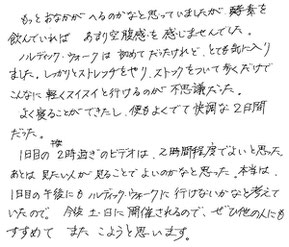 もっとおなかがへるのかなと思っていましたが酵素を
飲んでいれば あまり空腹感を感じませんでした。
ノルディック・ウォークは初めてだったけれど、とても気に入り
ました。しっかりとストレッチをやり、ストックをついて歩くだけで
こんなに軽くスイスイと行けるのが不思議だった。
よく寝ることができたし、便もよくでて快調な2日間
だった。
1日目の 午後 2時過ぎのビデオは、2時間程度でよいと思った
あとは見たい人が見ることでよいのかなと思った。本当は、
1日目の午後にもノルディック・ウォークに行けないかなと考えて
いたので、今後土・日に開催されるので、ぜひ他の人にも
すすめて また こようと思います。